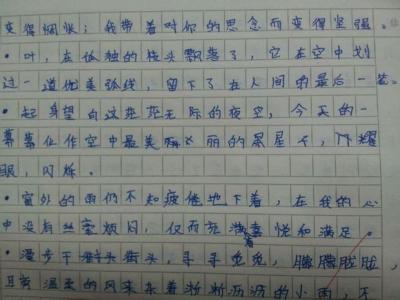 变得惆怅；我带着对你的思念而变得坚强。
·叶，在孤独的枝头飘落了，它在空中划
过一道优美弧线，留下了在人间的最后一
·起身望向这茫茫无际的夜空，今天的一
幕幕化作空中最美丽的星
眼，闪烁。
·窗外的雨仍不知疲倦地下着，在我的心
中没有丝毫烦闷，反而充满着喜悦和满足。
·漫步于街头，寻寻觅觅，朦朦胧胧，
且离温柔的风夹杂着淅淅沥沥的小雨，不